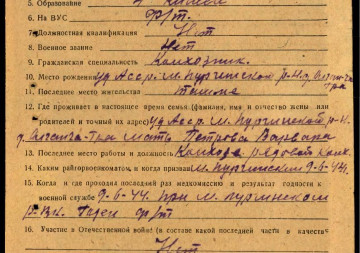 5. Образование 4 класса
6. На ВУС ф/т.
7. Должностная квалификация Нет
8. Военное звание Нет
9. Гражданская специальность Колхозник.
10. Место рождения уд Асср. м. пургинской р-н д.
11. Последнее место жительства также
12. Где проживает в настоящее время семья (фамилия, имя и отчество жены или
родителей и точный их адрес) уд Асср. м. Пургинский р-н
д. мать Петрова Варвара
13. Последнее место работы и должность Колхоз рядовой колх
14. Каким райгорвоенкоматом, и когда призван м. пургинским 9-6-44.
15. Когда и где проходил последний раз медкомиссию и результат годности к
военной службе 9-6-44. при м. пургинском
р.в.к. Годен ф/т
16. Участие в Отечественной войне (в составе какой последней части и в качестве
Нет